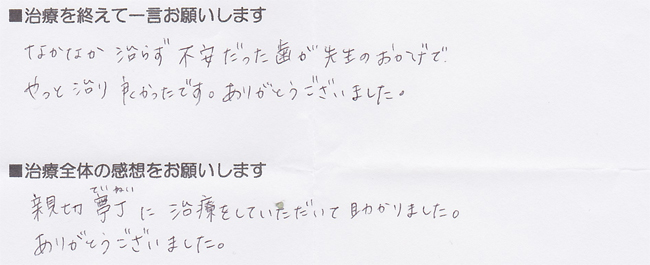 ■治療を終えて一言お願いします
なかなか治らず不安だった歯が先生のおかげで
やっと治り良かったです。ありがとうございました。
■治療全体の感想をお願いします
ていねい
親切寧丁に治療をしていただいて助かりました。
ありがとうございました。